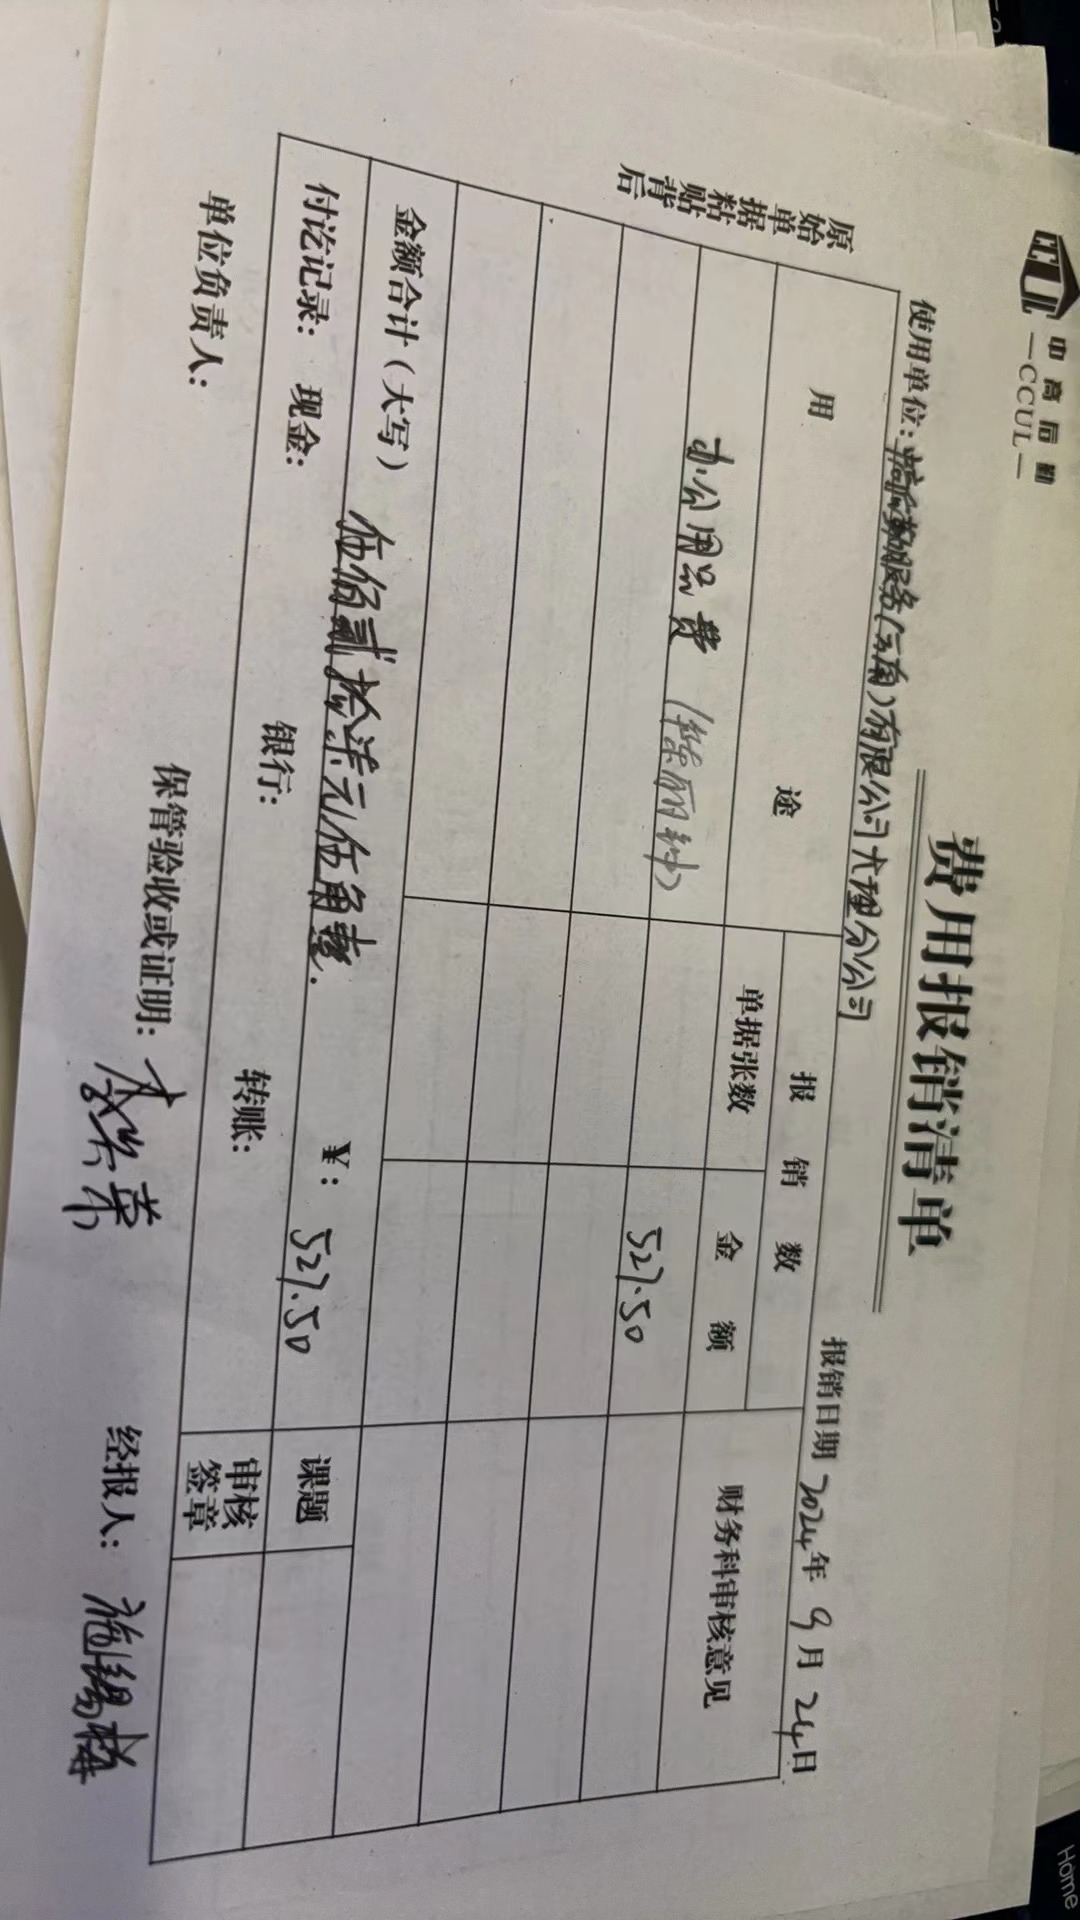 中高后勤
—CCUL—
费用报销清单
使用单位:中高后勤服务(云南)有限公司大理分公司 报销日期 2024年 9月 24日
原始单据粘贴背后
用 途 报 销 数 财务科审核意见
单据张数 金 额
办公用品费 527.50
金额合计(大写) 伍佰贰拾柒元伍角整. ¥: 527.50 课题
付讫记录: 现金: 银行: 转账: 审核签章
单位负责人: 保管验收或证明: 经报人:
Home